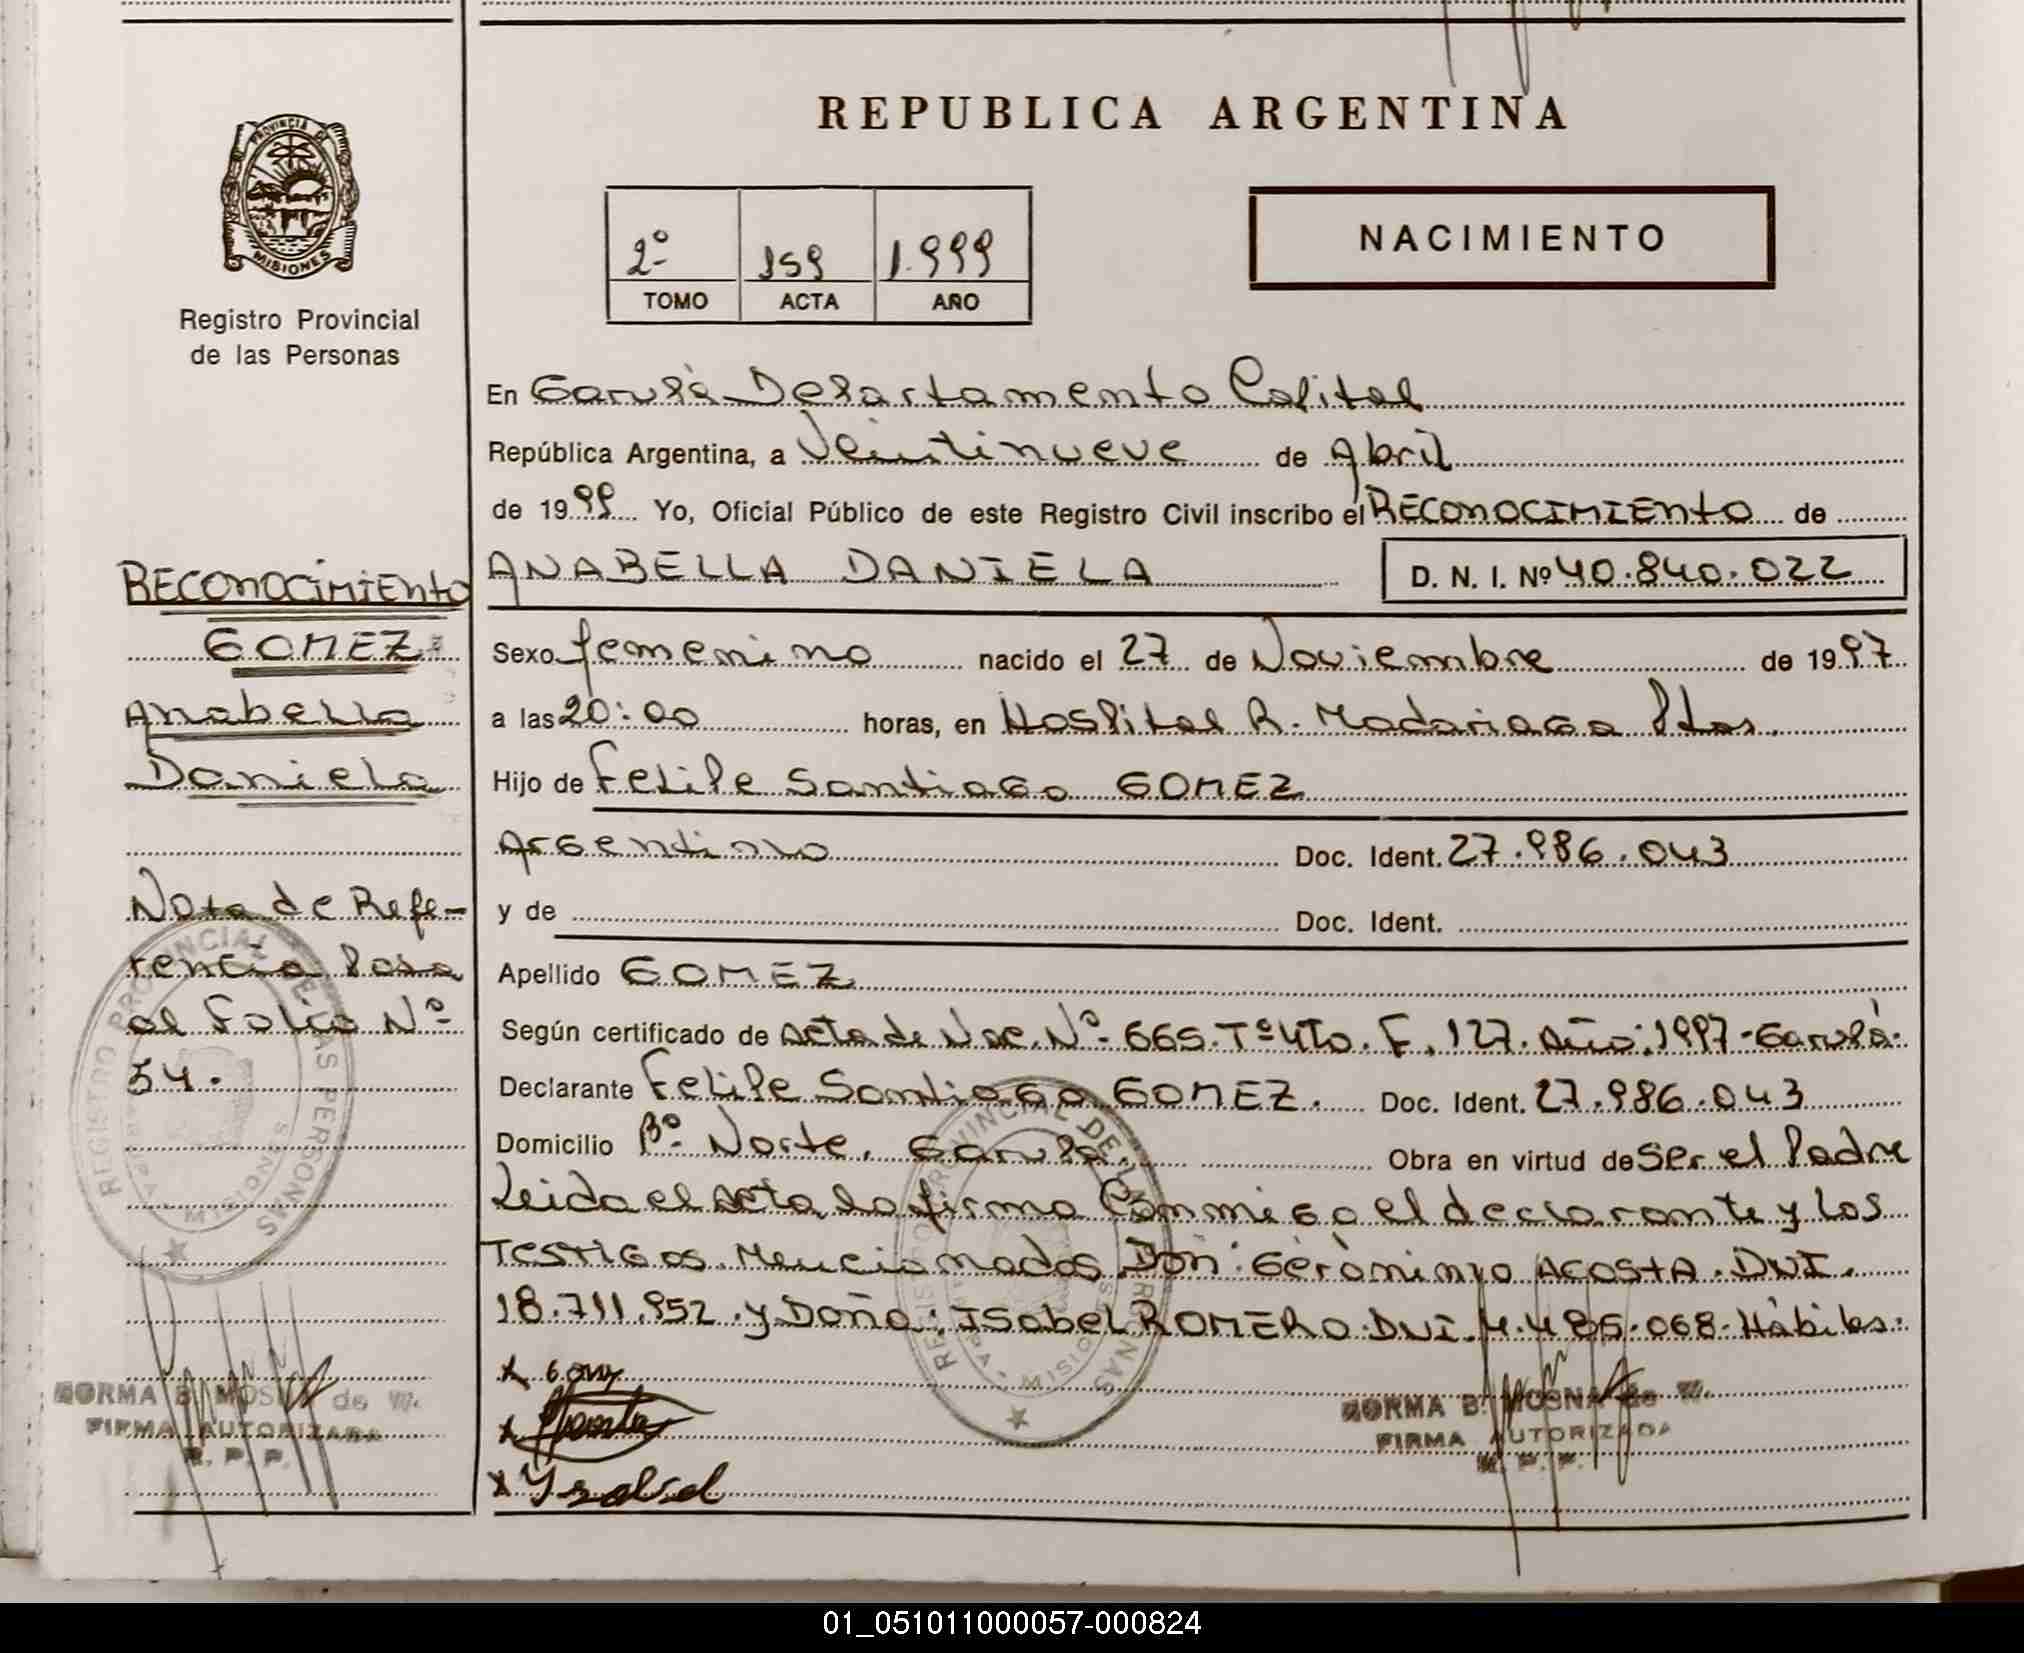 PROVINCIA DE
MISIONES
Registro Provincial
de las Personas
REPUBLICA ARGENTINA
2º 159 1.999
TOMO ACTA AÑO
NACIMIENTO
En Garupá Departamento Capital
República Argentina, a Veintinueve de Abril
de 1999 Yo, Oficial Público de este Registro Civil inscribo el RECONOCIMIENTO de
ANABELLA DANIELA D. N. I. Nº 40.840.022
Sexo femenino nacido el 27 de Noviembre de 1997
a las 20:00 horas, en Hospital R. Madariaga Pdas.
Hijo de Felipe Santiago GOMEZ
Argentino Doc. Ident. 27.986.043
y de Doc. Ident.
Apellido GOMEZ
Según certificado de Acta de Nac. Nº 665. Tº 4to. F. 127. Año: 1997-Garupá.
Declarante Felipe Santiago GOMEZ. Doc. Ident. 27.986.043
Domicilio Bº Norte. Garupá. Obra en virtud de ser el Padre
Leida el Acta, la firma Conmigo el declarante y los
Testigos Mencionados. Don: Gerónimo ACOSTA. DNI.
18.711.952. y Doña: ISabel ROMERO. DNI. 4.485.068. Hábiles.
RECONOCIMIENTO
GOMEZ
Anabella
Daniela
Nota de Refe-
rencia Pasa
al Folio Nº
54.
REGISTRO PROVINCIAL DE LAS PERSONAS
MISIONES
NORMA B. MOSNA de
FIRMA AUTORIZADA
R. P. P.
X
X
X Ysabel
REGISTRO PROVINCIAL DE LAS PERSONAS
MISIONES
NORMA B. MOSNA de
FIRMA AUTORIZADA
R. P. P.
01_051011000057-000824